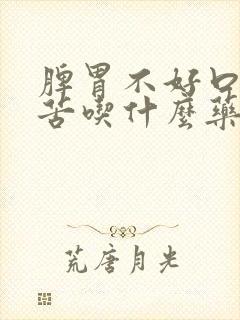 脾胃不好口
苦喫什麼藥
荒唐月光